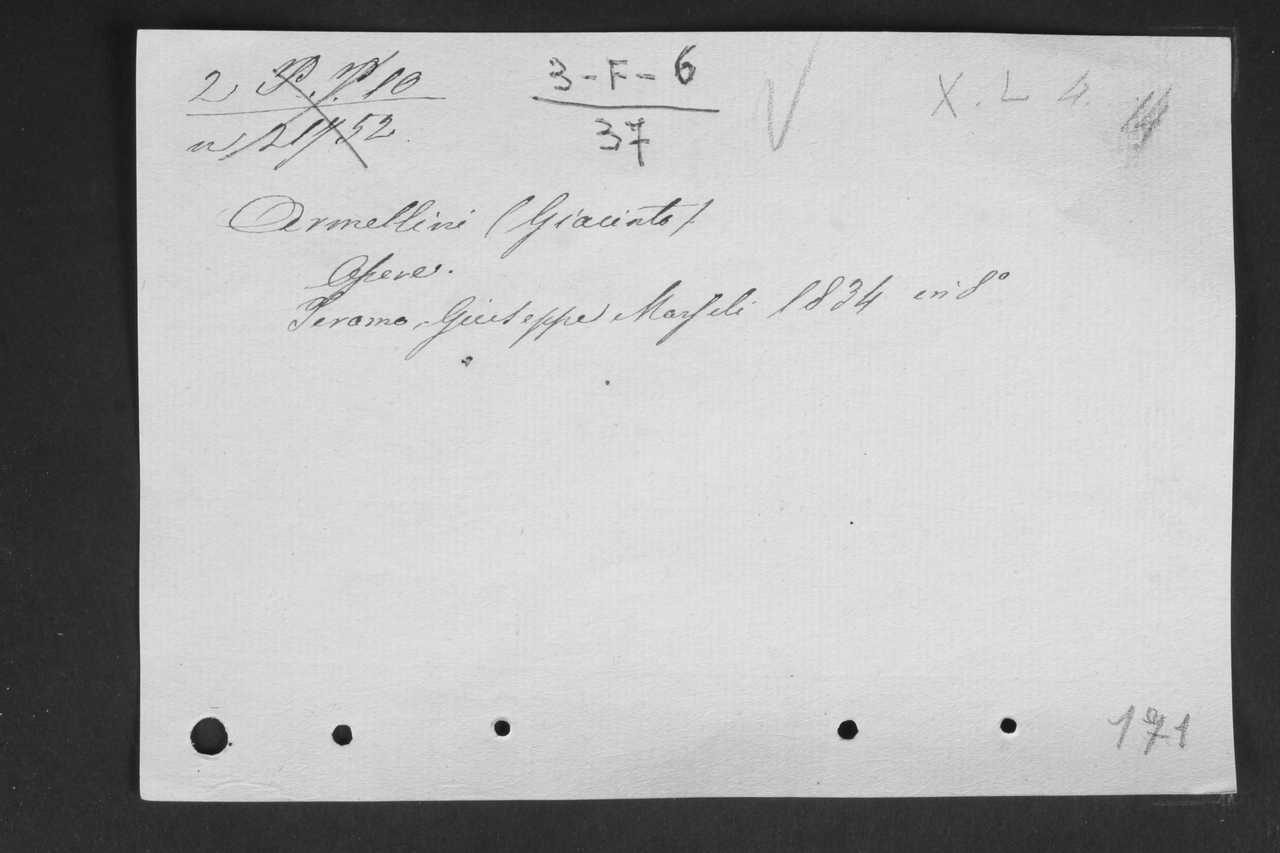 2 P. P. 10
3-F-6
37
X. L 4.
Armellini (Giacinto)
Opere.
Teramo, Giuseppe Marsili 1834 in 8°
171